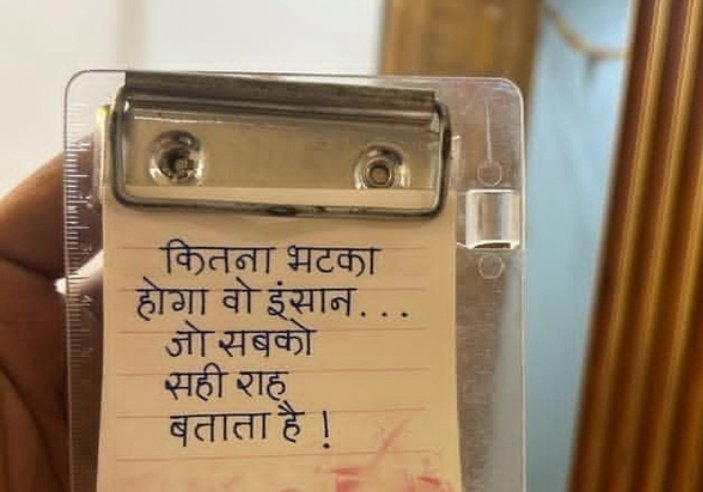 कितना भटका
होगा वो इंसान...
जो सबको
सही राह
बताता है !